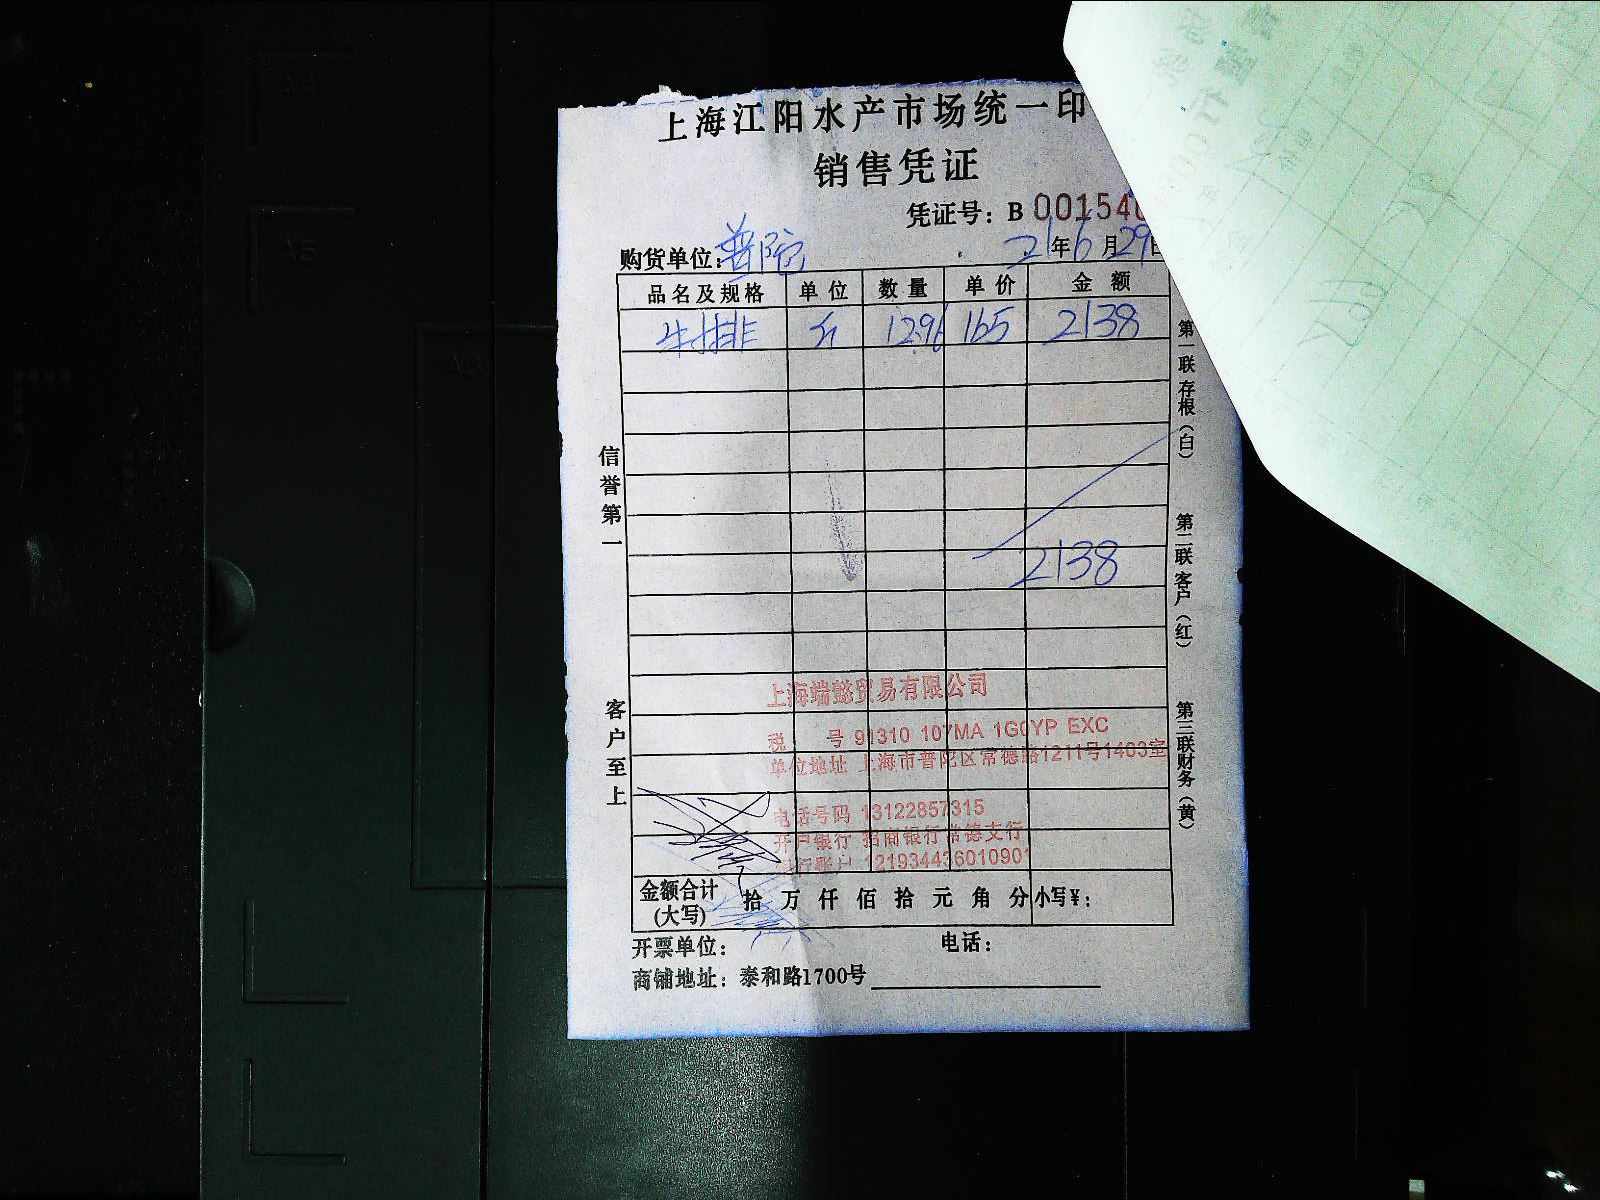 上海江阳水产市场统一印
销售凭证
凭证号：B 001540
购货单位：普陀 21年6月29日
品名及规格 单位 数量 单价 金额
牛排 斤 12.96 165 2138
2138
信誉第一
客户至上
第一联存根（白）
第二联客户（红）
第三联财务（黄）
上海端懿贸易有限公司
税 号 91310 107MA 1G0YP EXC
单位地址 上海市普陀区常德路1211号1403室
电话号码 13122857315
开户银行 招商银行常德支行
银行账户 121934436010901
金额合计(大写) 拾 万 仟 佰 拾 元 角 分 小写¥：
开票单位： 电话：
商铺地址：泰和路1700号